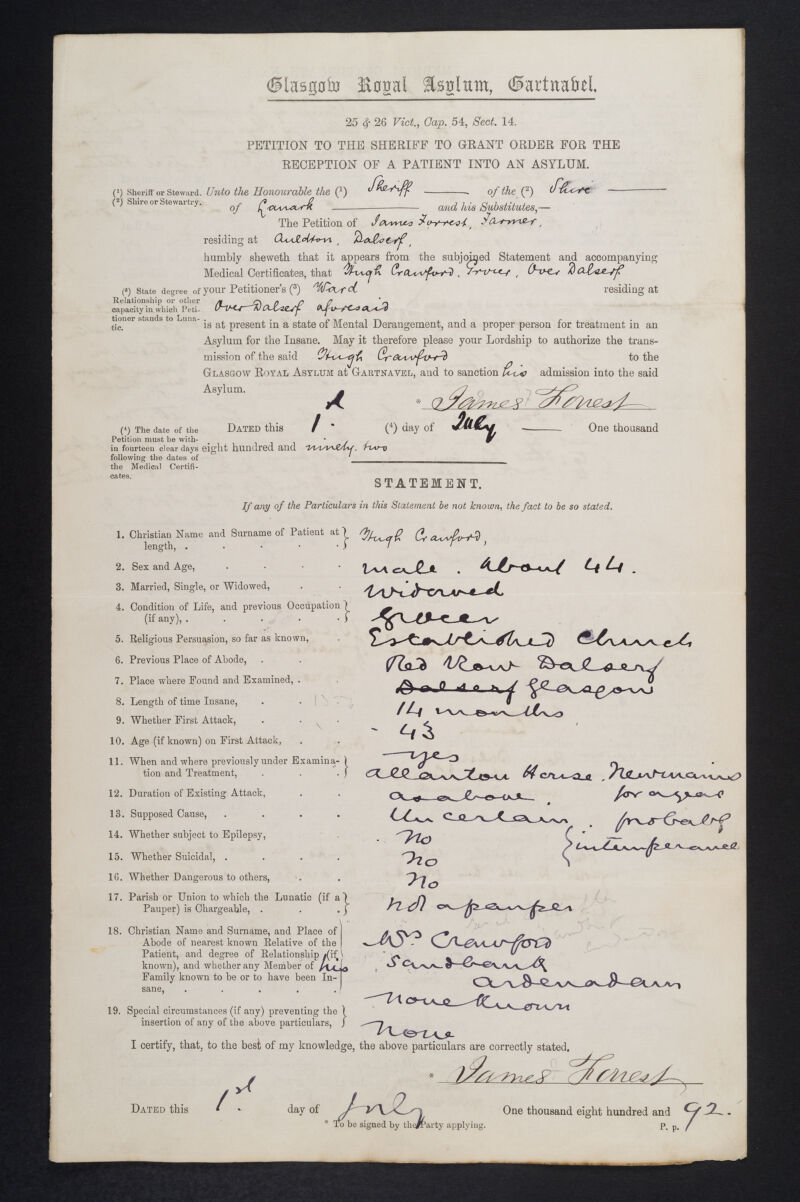 Glasgow Royal Asylum, Gartnabel.
25 & 26 Vict., Cap. 54, Sect. 14.
PETITION TO THE SHERIFF TO GRANT ORDER FOR THE
RECEPTION OF A PATIENT INTO AN ASYLUM.
(¹) Sheriff or Steward.
(²) Shire or Stewartry.
Unto the Honourable the (¹) Sheriff of the (²) Shire
of Lanark and his Substitutes,—
The Petition of James Forrest, Farmer,
residing at Auldton, Dalserf,
humbly sheweth that it appears from the subjoined Statement and accompanying
Medical Certificates, that Hugh Crawford, Grocer, Over Dalserf
(³) State degree of
Relationship or other
capacity in which Peti-
tioner stands to Luna-
tic.
your Petitioner's (³) Ward residing at
Over Dalserf aforesaid
is at present in a state of Mental Derangement, and a proper person for treatment in an
Asylum for the Insane. May it therefore please your Lordship to authorize the trans-
mission of the said Hugh Crawford to the
GLASGOW ROYAL ASYLUM at GARTNAVEL, and to sanction his admission into the said
Asylum.
* James Forrest
(⁴) The date of the
Petition must be with-
in fourteen clear days
following the dates of
the Medical Certifi-
cates.
DATED this 1st (⁴) day of July One thousand
eight hundred and ninety. two
STATEMENT.
If any of the Particulars in this Statement be not known, the fact to be so stated.
1. Christian Name and Surname of Patient at
length, . Hugh Crawford,
2. Sex and Age, male. About 44.
3. Married, Single, or Widowed, Widowed
4. Condition of Life, and previous Occupation
(if any), . Grocer
5. Religious Persuasion, so far as known, Established Church
6. Previous Place of Abode, Red Row Dalserf
7. Place where Found and Examined, . Dalserf Glasgow
8. Length of time Insane, 14 months
9. Whether First Attack, 43
10. Age (if known) on First Attack, yes
11. When and where previously under Examina-
tion and Treatment, Allanton House. Newmains
for a year
12. Duration of Existing Attack, as above.
13. Supposed Cause, Uncertain, . probably
intemperance
14. Whether subject to Epilepsy, No
15. Whether Suicidal, . No
16. Whether Dangerous to others, No
17. Parish or Union to which the Lunatic (if a
Pauper) is Chargeable, . not a pauper
18. Christian Name and Surname, and Place of
Abode of nearest known Relative of the
Patient, and degree of Relationship (if
known), and whether any Member of his
Family known to be or to have been In-
sane, Mrs Crawford
Sandbank
Ardenadam
None Known
19. Special circumstances (if any) preventing the
insertion of any of the above particulars, None
I certify, that, to the best of my knowledge, the above particulars are correctly stated.
* James Forrest
DATED this 1st day of July One thousand eight hundred and 92.
* To be signed by the Party applying.
P. p.